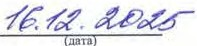 16.12.2025
(дата)